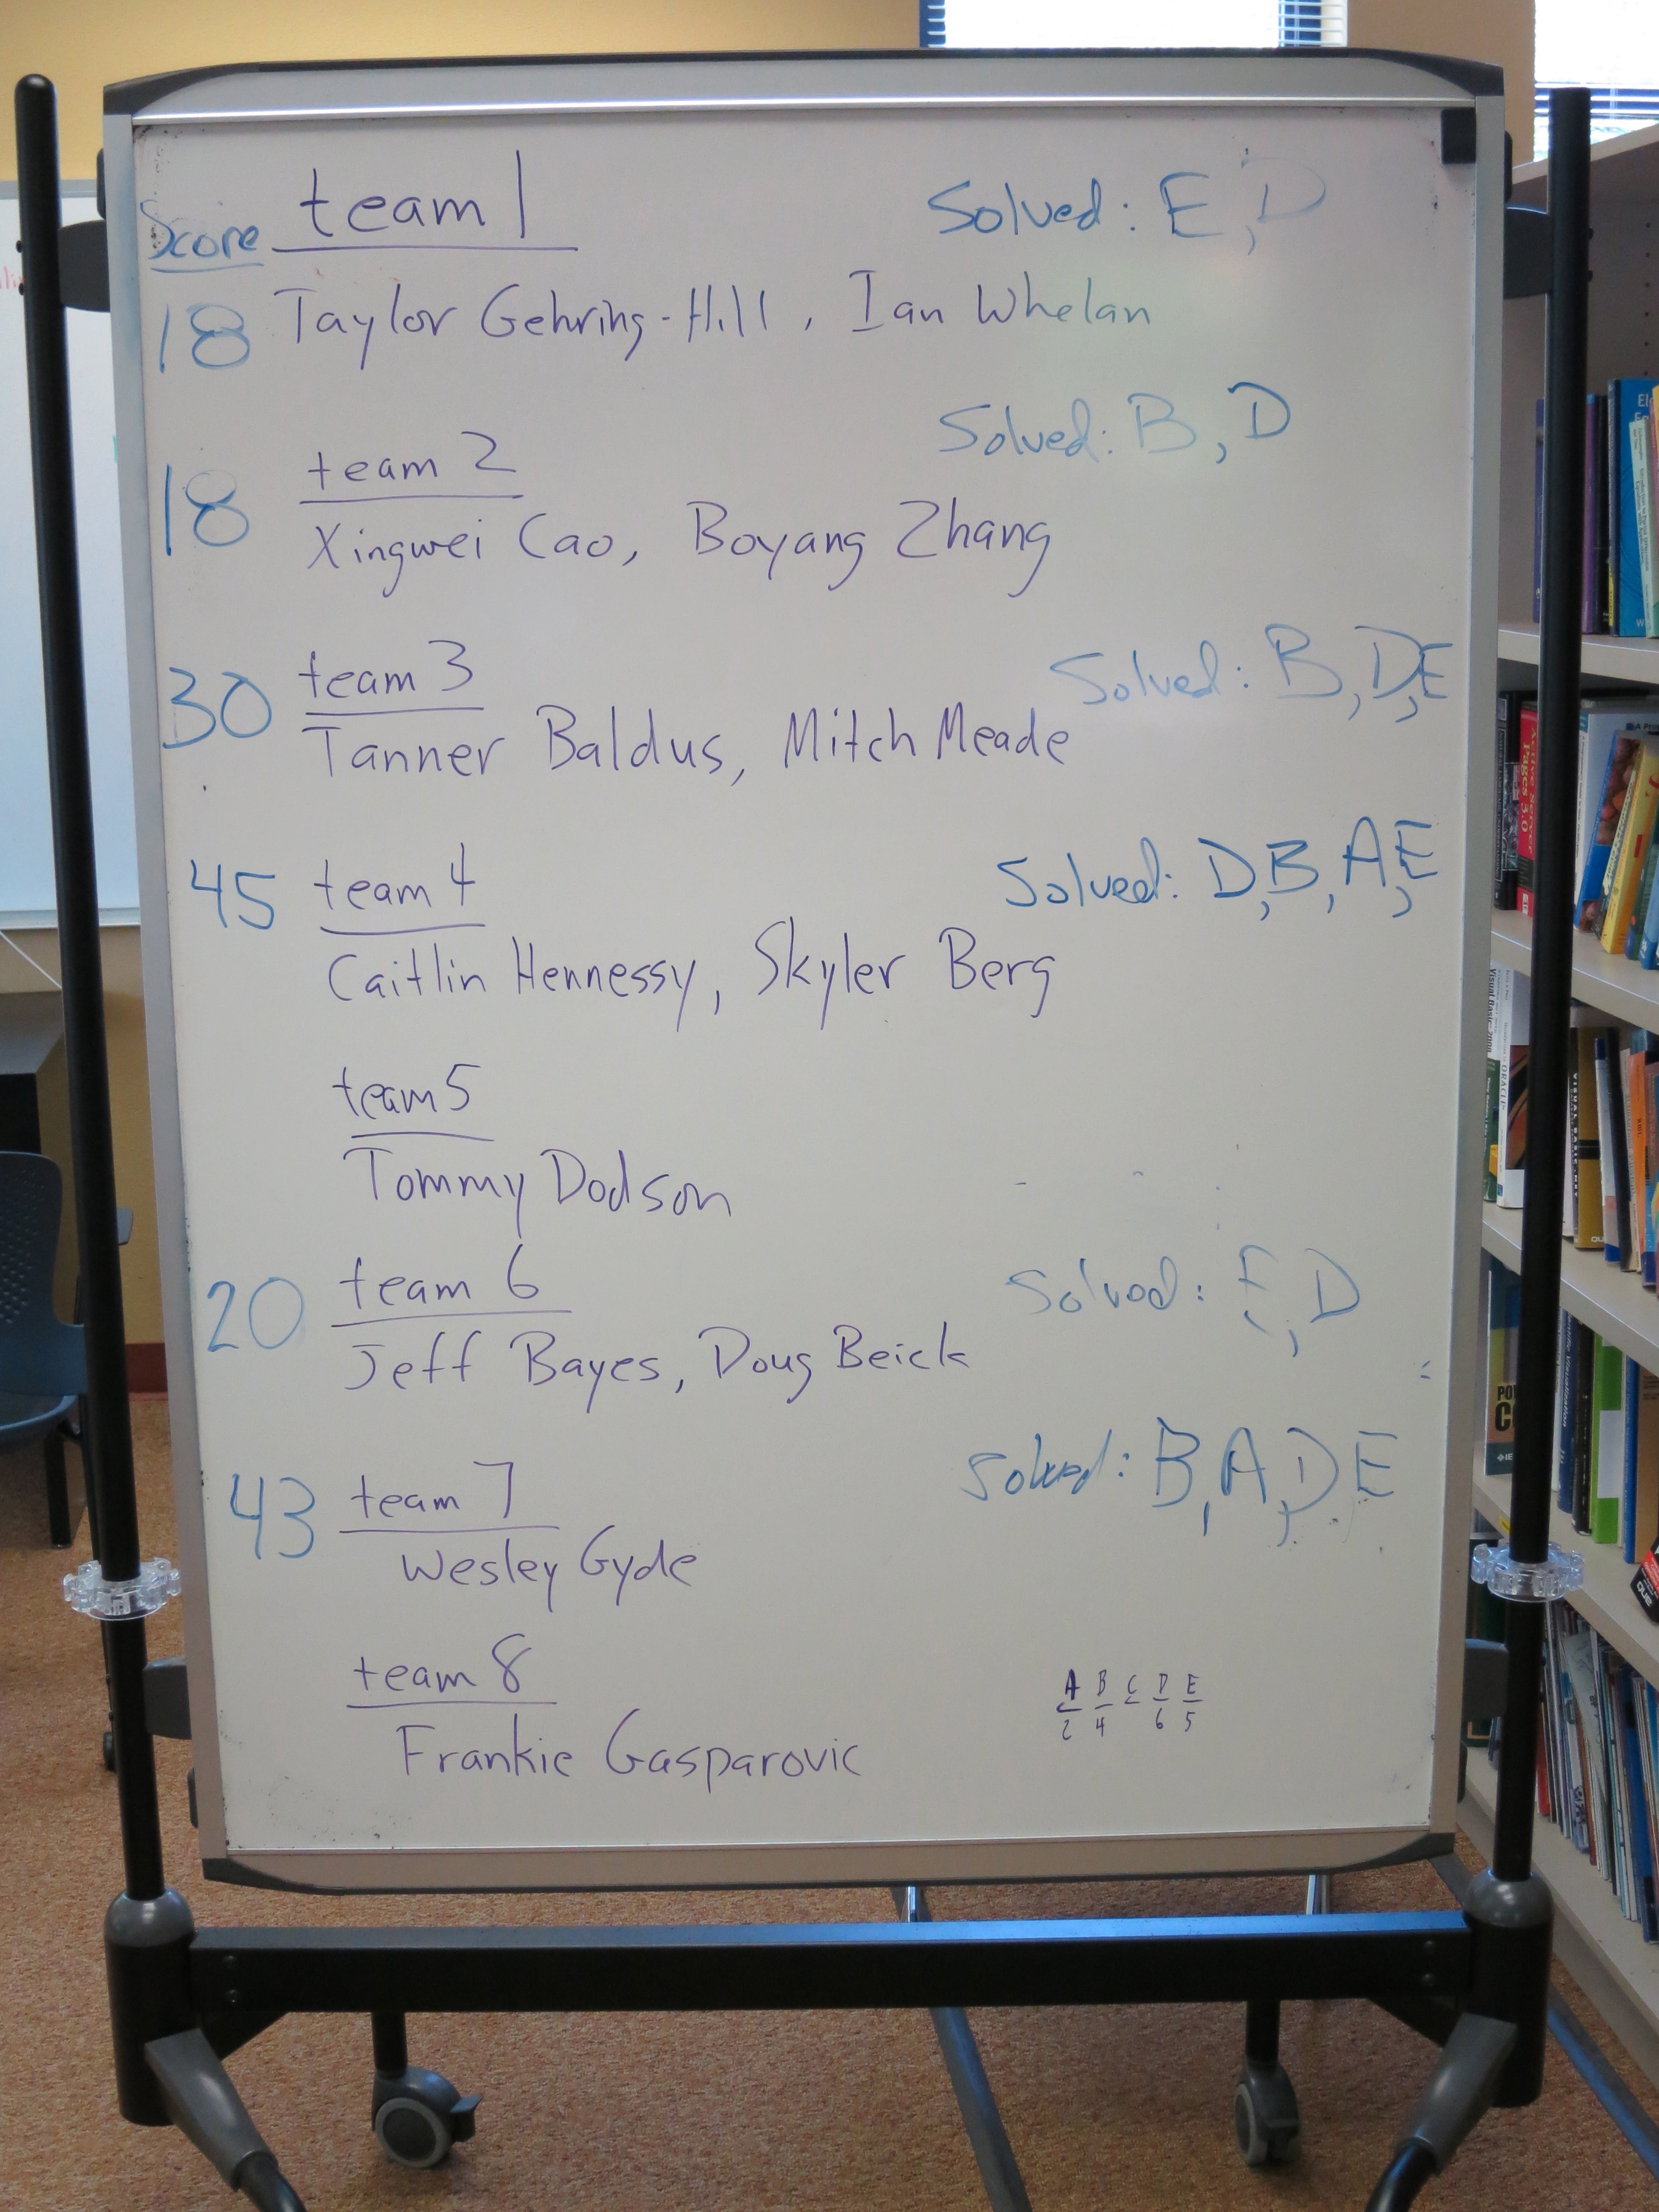 team 1
Solved: E, D
Score
18 Taylor Gehring-Hill, Ian Whelan
Solved: B, D
team 2
18
Xingwei Cao, Boyang Zhang
Solved: B, D, E
30 team 3
Tanner Baldus, Mitch Meade
Solved: D, B, A, E
45 team 4
Caitlin Hennessy, Skyler Berg
team 5
Tommy Dodson
Solved: E, D
20 team 6
Jeff Bayes, Doug Beick
Solved: B, A, D E
43 team 7
Wesley Gyde
team 8
A B C D E
2 4 6 5
Frankie Gasparovic